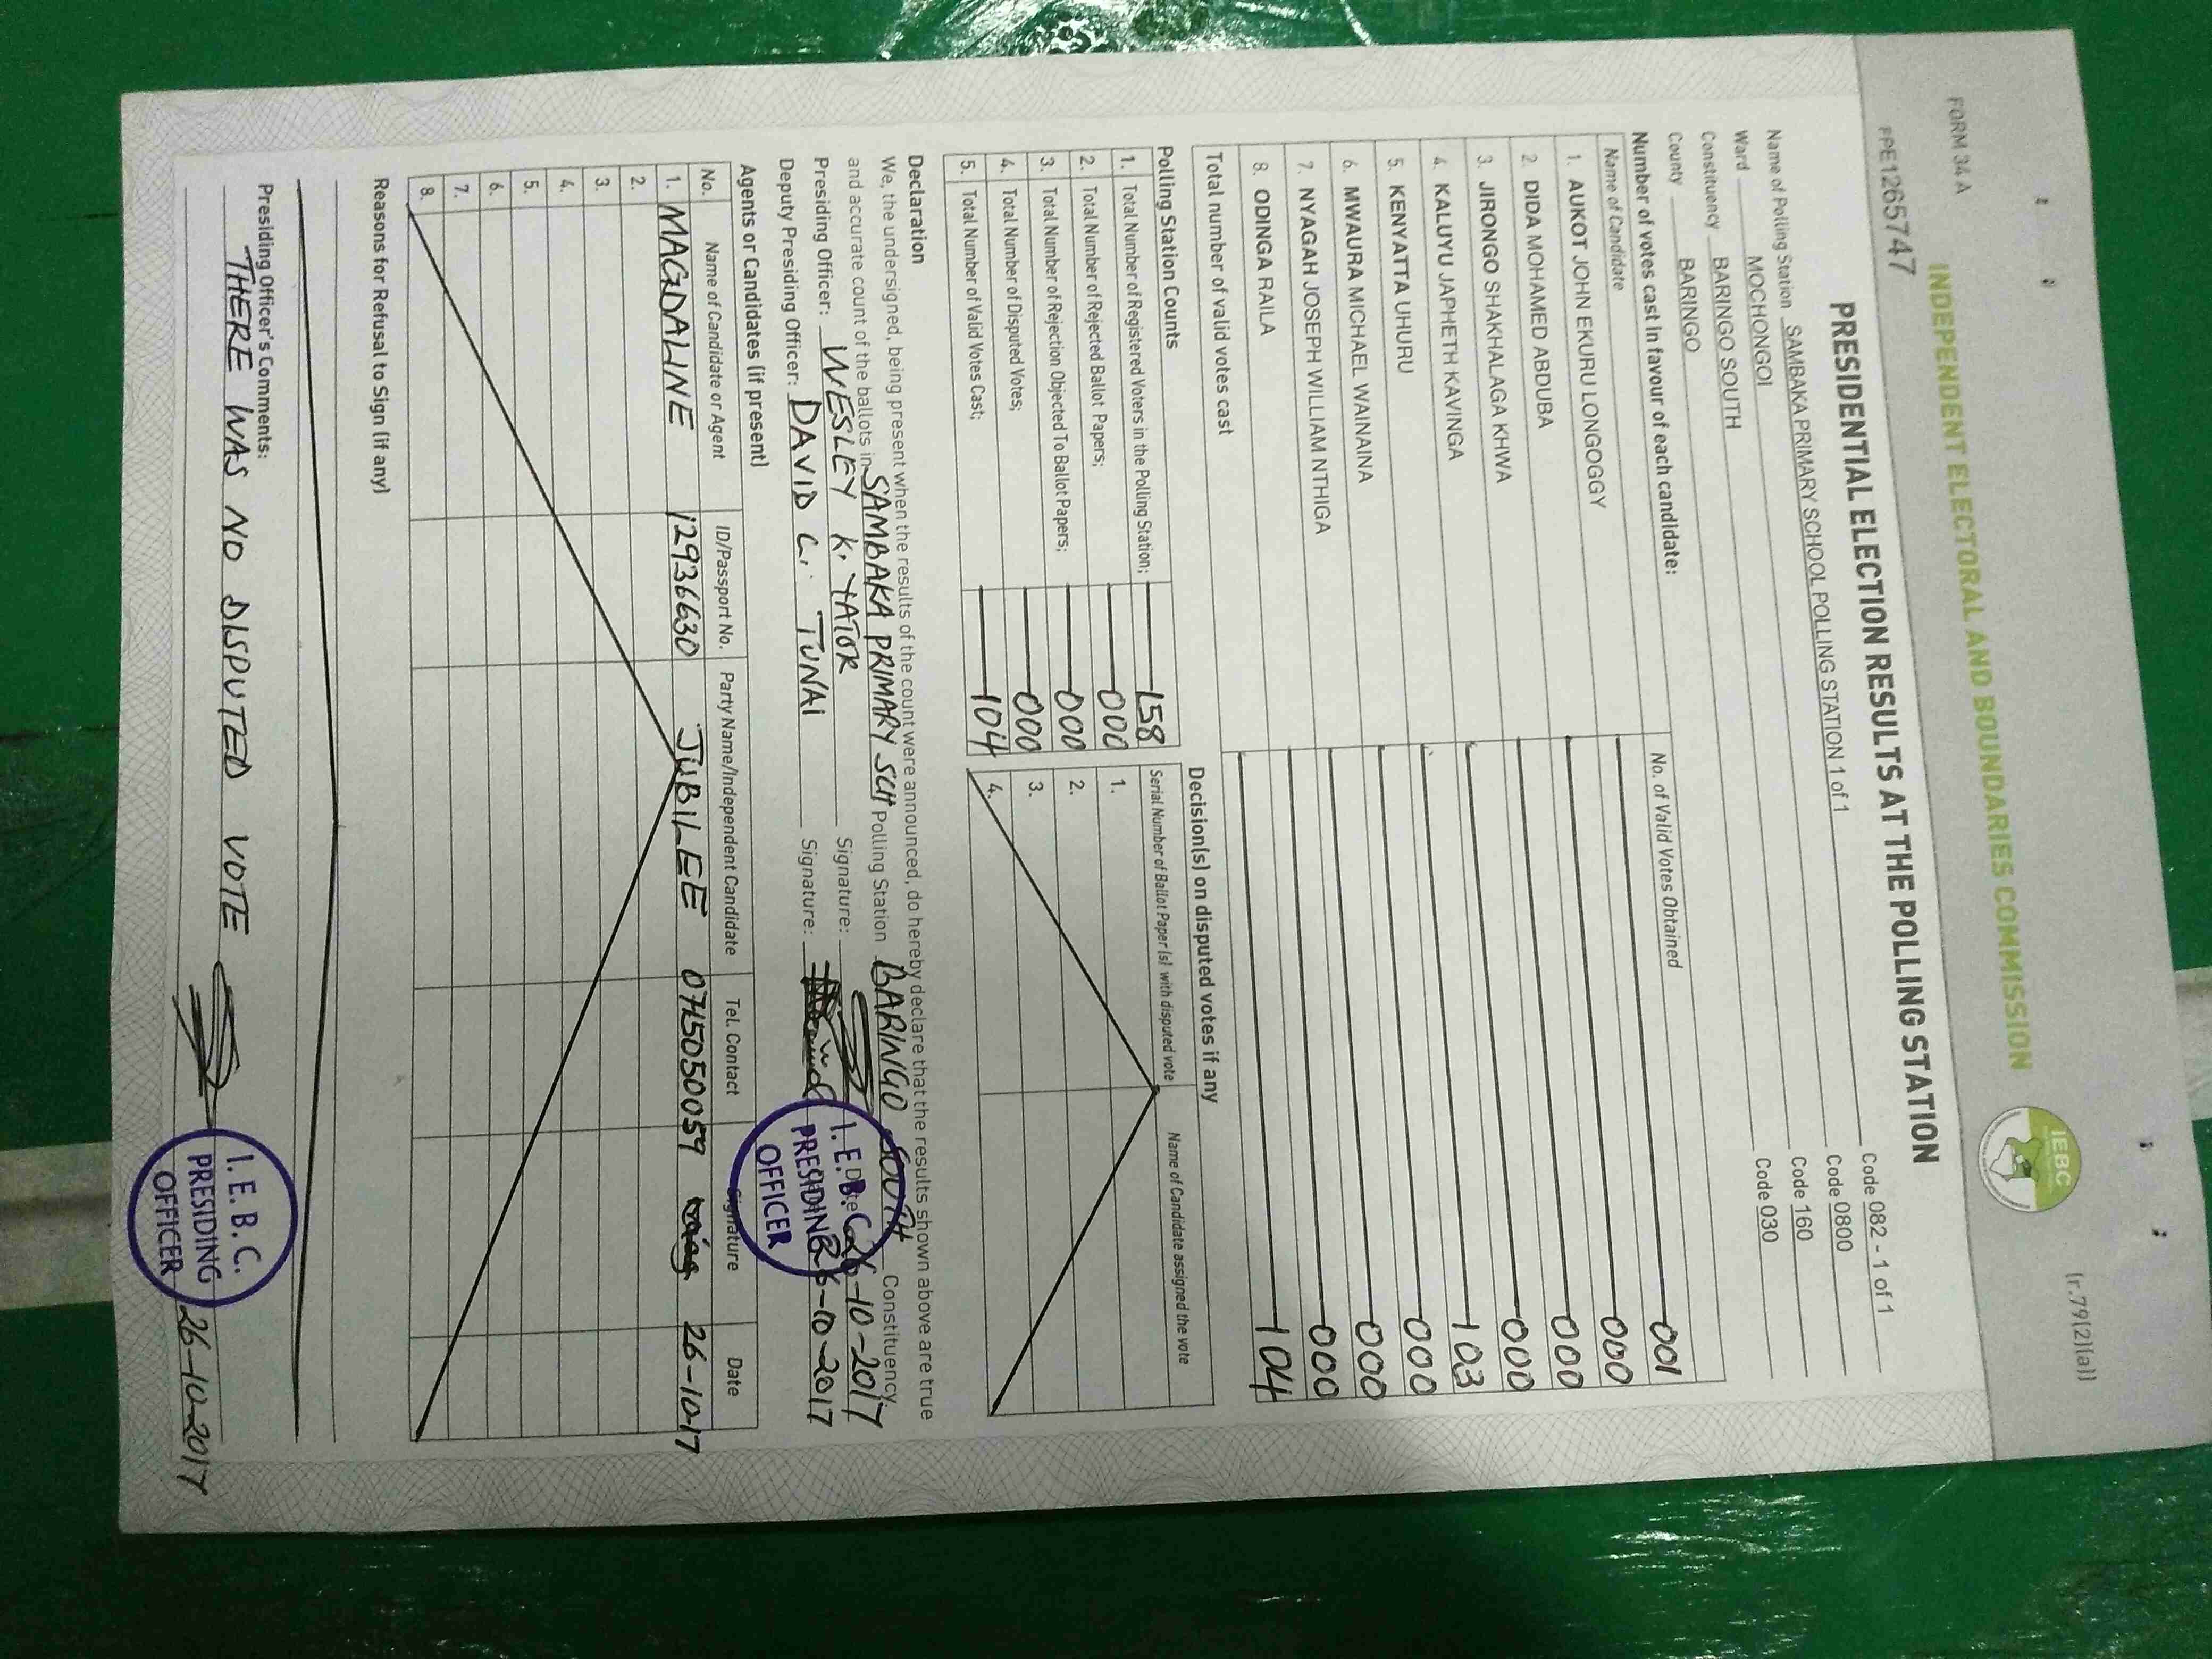 (r.79(2)(a))
FORM 34 A
INDEPENDENT ELECTORAL AND BOUNDARIES COMMISSION
IEBC
PPE1265747
PRESIDENTIAL ELECTION RESULTS AT THE POLLING STATION
Name of Polling Station SAMBAKA PRIMARY SCHOOL POLLING STATION 1 of 1 Code 082 - 1 of 1
Ward MOCHONGOI Code 0800
Constituency BARINGO SOUTH Code 160
County BARINGO Code 030
Number of votes cast in favour of each candidate:
Name of Candidate No. of Valid Votes Obtained
1. AUKOT JOHN EKURU LONGOGGY 001
2. DIDA MOHAMED ABDUBA 000
3. JIRONGO SHAKHALAGA KHWA 000
4. KALUYU JAPHETH KAVINGA 000
5. KENYATTA UHURU 103
6. MWAURA MICHAEL WAINAINA 000
7. NYAGAH JOSEPH WILLIAM NTHIGA 000
8. ODINGA RAILA 000
Total number of valid votes cast 104
Polling Station Counts
1. Total Number of Registered Voters in the Polling Station; 158
2. Total Number of Rejected Ballot Papers; 000
3. Total Number of Rejection Objected To Ballot Papers; 000
4. Total Number of Disputed Votes; 000
5. Total Number of Valid Votes Cast; 104
Decision(s) on disputed votes if any
Serial Number of Ballot Paper(s) with disputed vote Name of Candidate assigned the vote
1.
2.
3.
4.
Declaration
We, the undersigned, being present when the results of the count were announced, do hereby declare that the results shown above are true
and accurate count of the ballots in SAMBAKA PRIMARY SCH Polling Station BARINGO SOUTH Constituency
Presiding Officer: WESLEY K. YATOR Signature: Date 26-10-2017
Deputy Presiding Officer: DAVID C. TUNAI Signature: 26-10-2017
I.E.B.C.
PRESIDING
OFFICER
Agents or Candidates (if present)
No. Name of Candidate or Agent ID/Passport No. Party Name/Independent Candidate Tel. Contact Signature Date
1. MAGDALINE 12936630 JUBILEE 0715050059 26-10-17
2.
3.
4.
5.
6.
7.
8.
Reasons for Refusal to Sign (if any)
Presiding Officer's Comments:
THERE WAS NO DISPUTED VOTE
I.E.B.C.
PRESIDING
OFFICER
26-10-2017